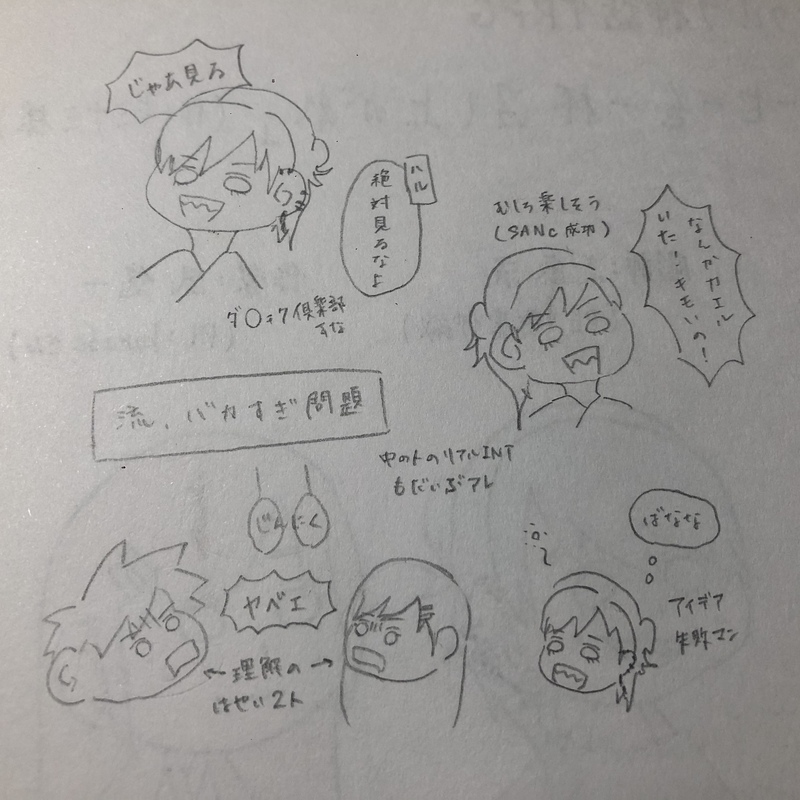 じゃあ見る
ハル
絶対見るなよ
ダ○チワ倶楽部
すな
むしろ楽しそう
(SANc成功)
なんかカエル
いた!キモいの!
流、バカすぎ問題
中の人のリアルINT
もだいぶアレ
じん
にく
ヤベエ
←理解の→
はやい2人
ばなな
アイデア
失敗マン